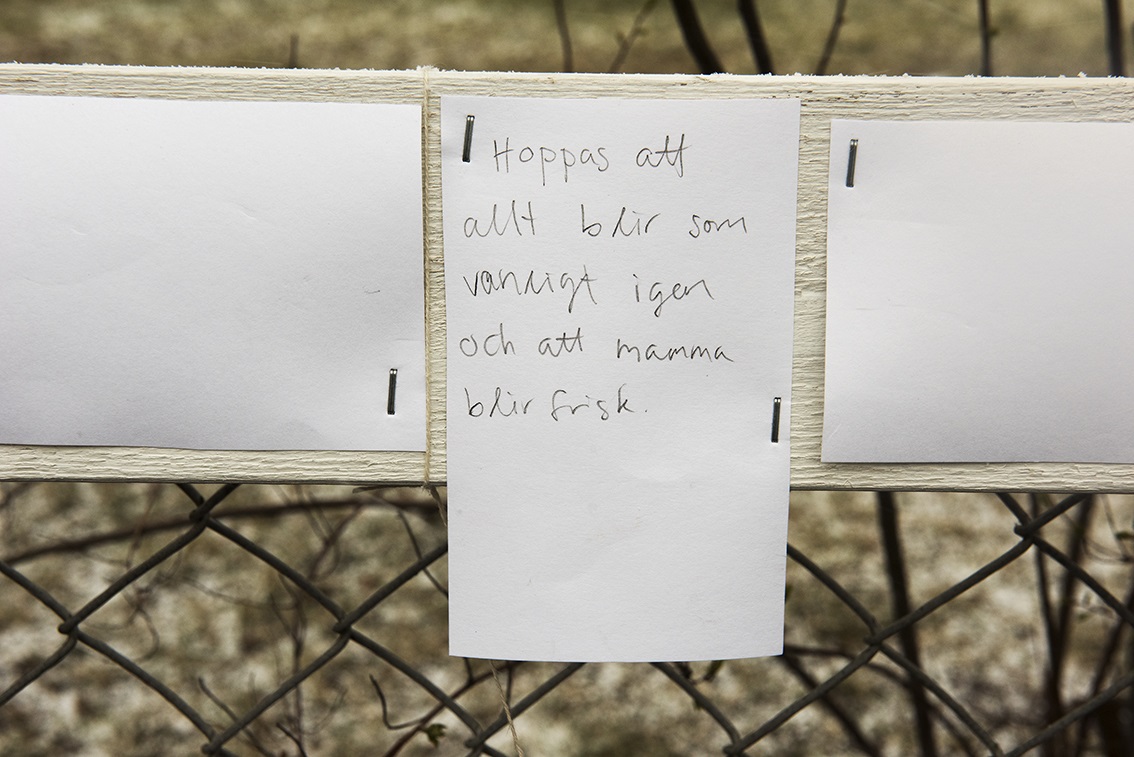 Hoppas att
allt blir som
vanligt igen
och att mamma
blir frisk.